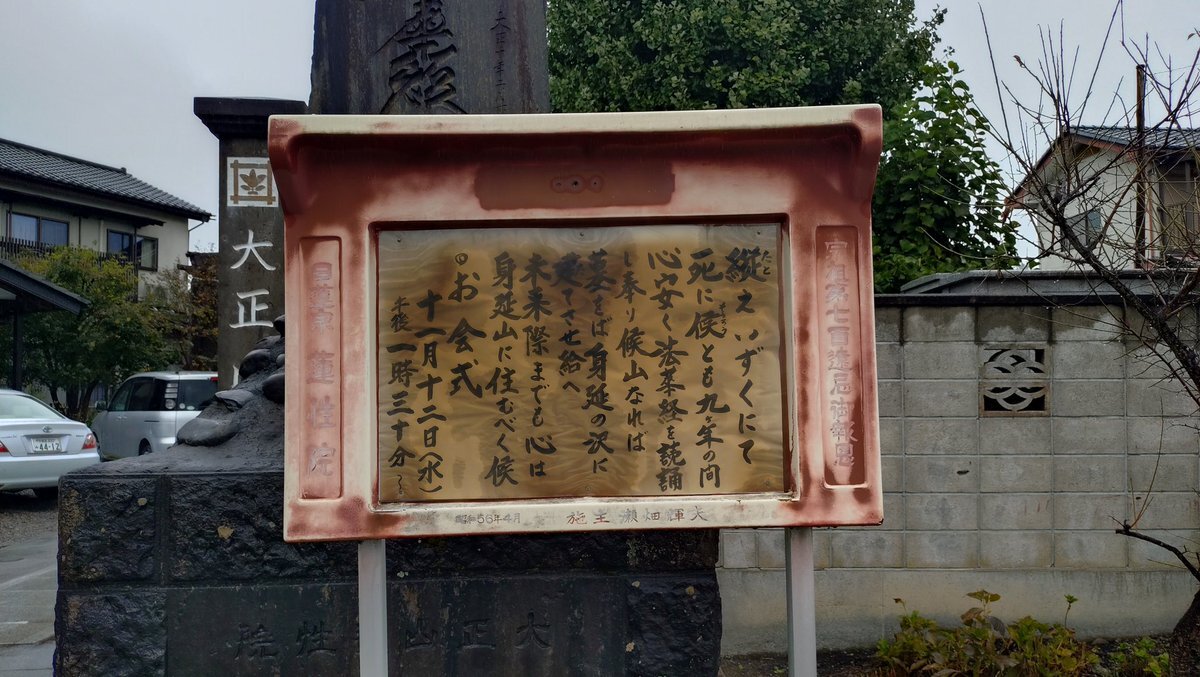 大正
宗祖第七百遠忌御報恩
縦え いずくにて
たと
死に候とも九ヶ年の間
そうろう
心安く法華経を読誦
し奉り候山なれば
墓をば身延の沢に
建てさせ給へ
未来際までも心は
身延山に住むべく候
お会式
十一月十二日(水)
午後一時三十分〜
日蓮宗 蓮性院
昭和56年4月 施主 瀬畑輝夫
大正山
性院
44-12